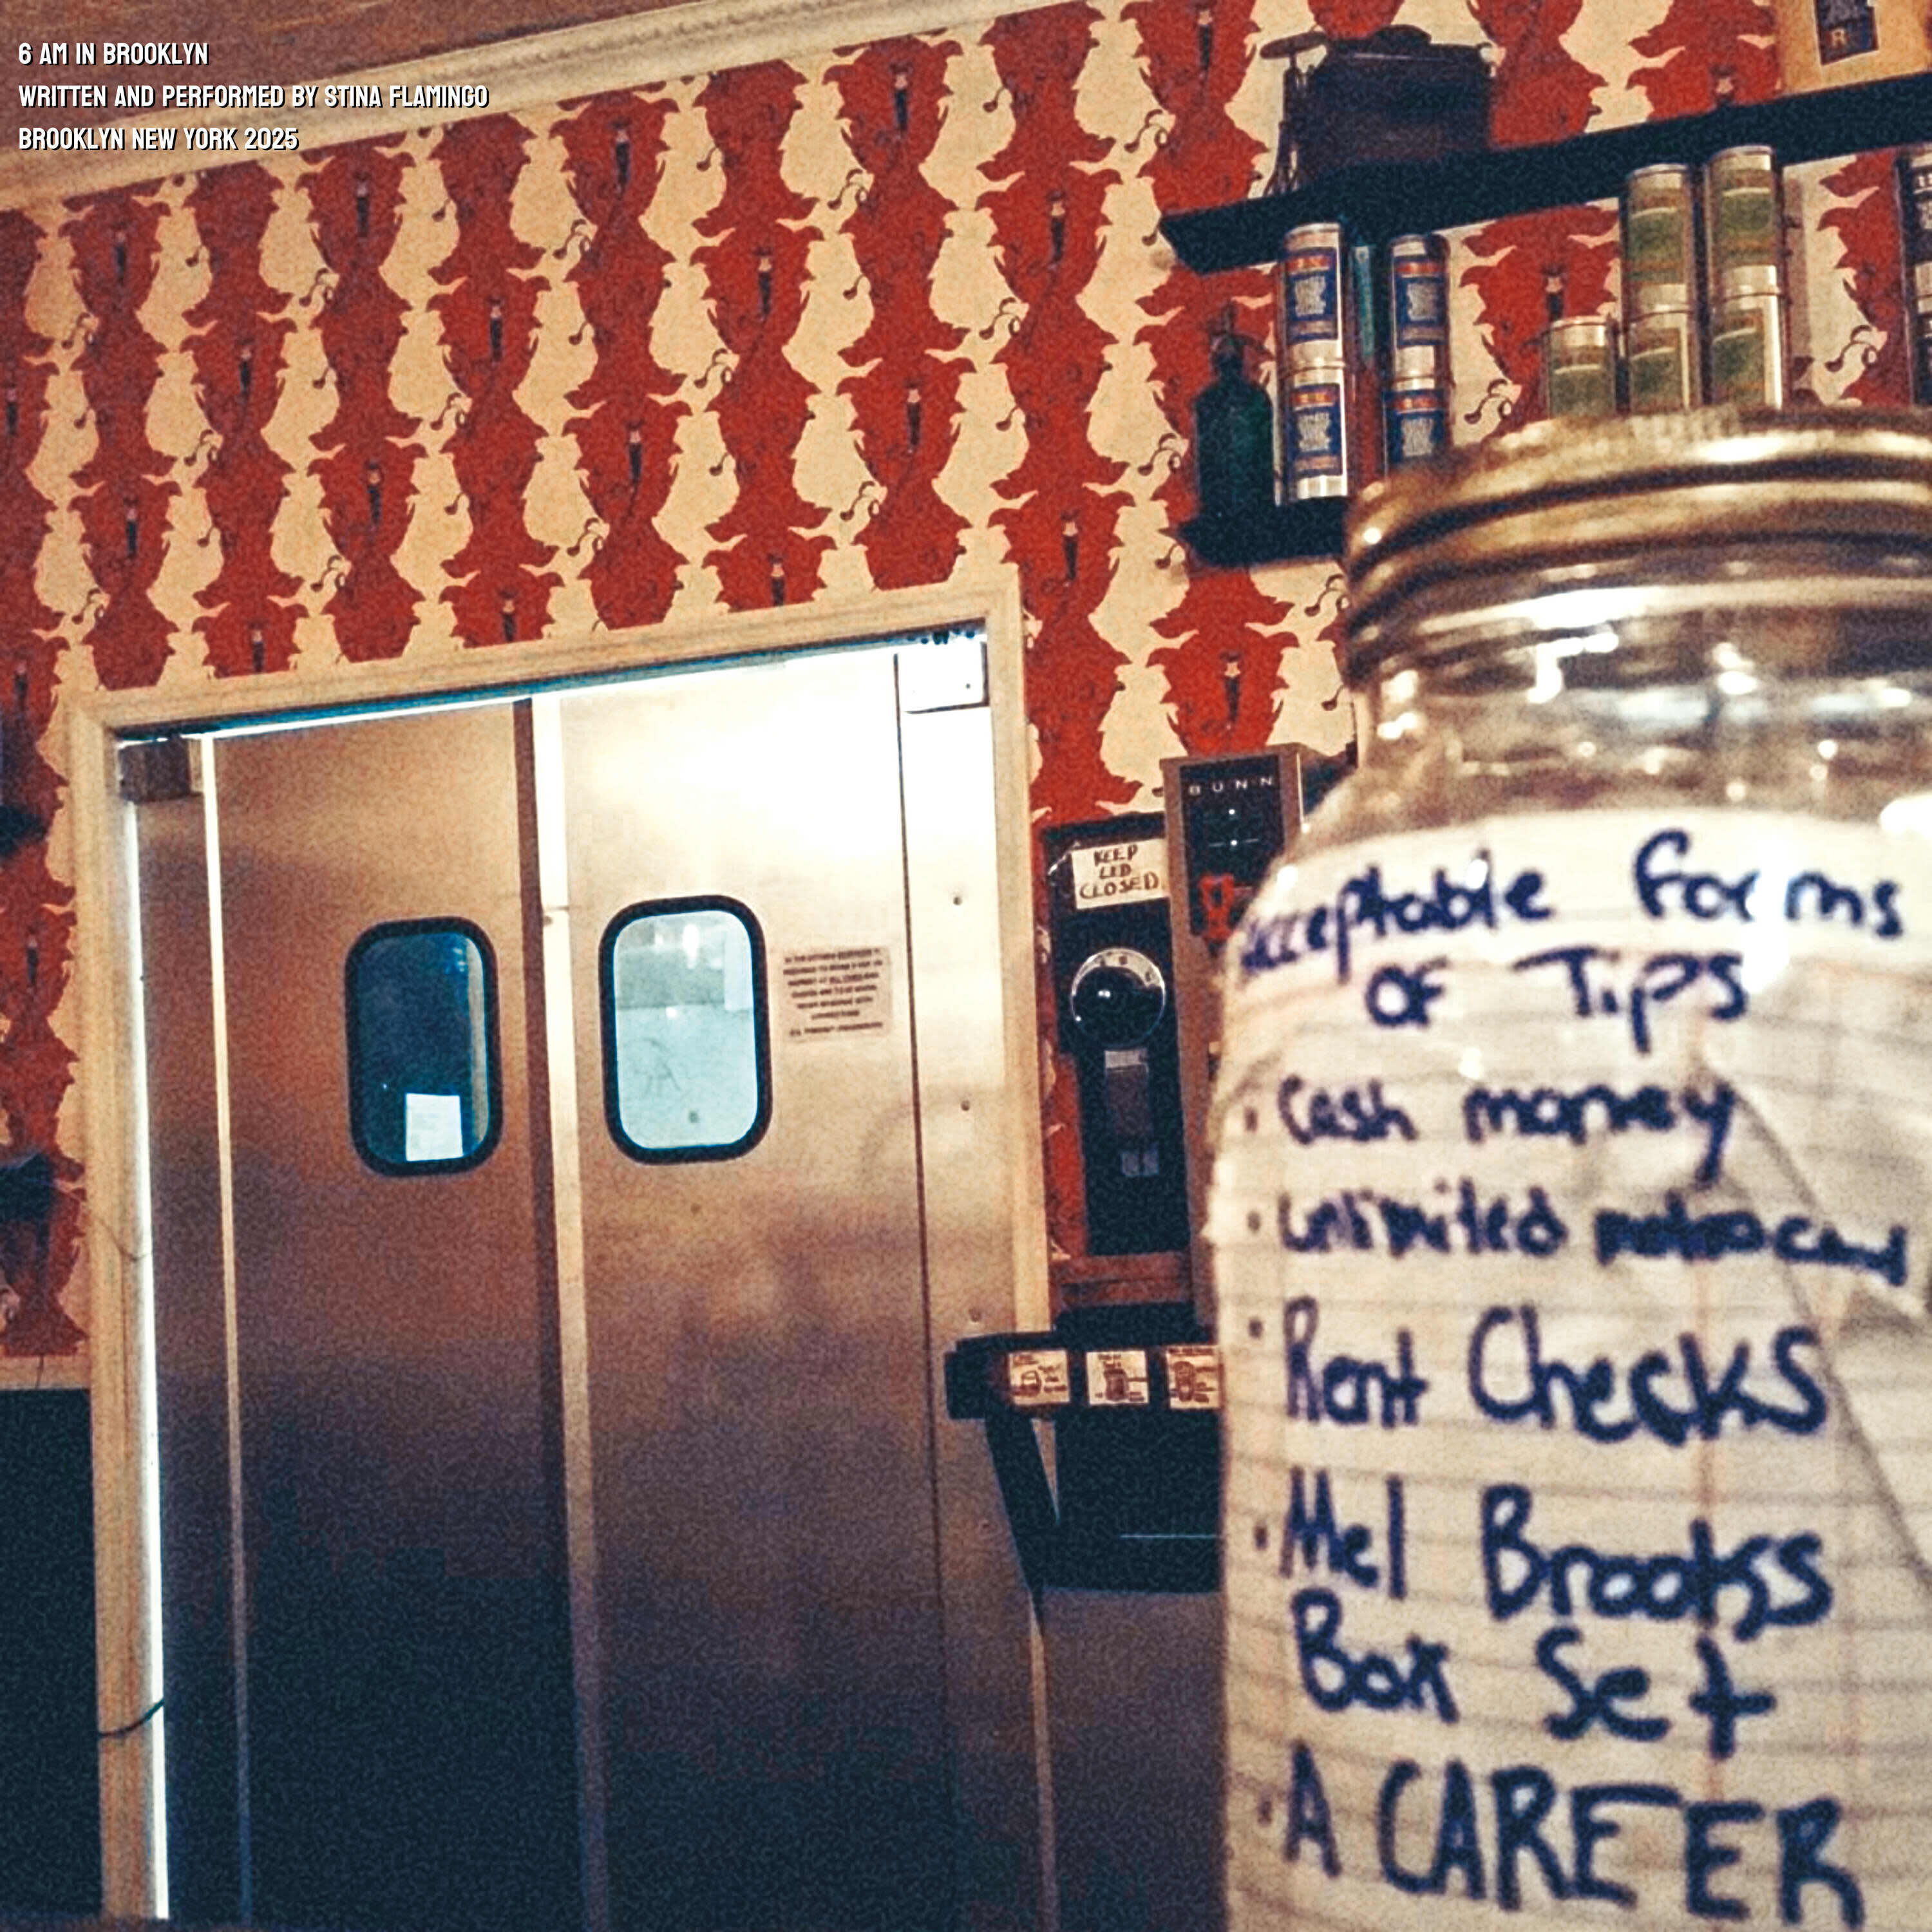 6 AM IN BROOKLYN
WRITTEN AND PERFORMED BY STINA FLAMINGO
BROOKLYN NEW YORK 2025
BUNN
KEEP
LID
CLOSED
Acceptable forms
of Tips
· Cash money
· unlimited metrocard
· Rent Checks
· Mel Brooks
Box Set
· A CAREER